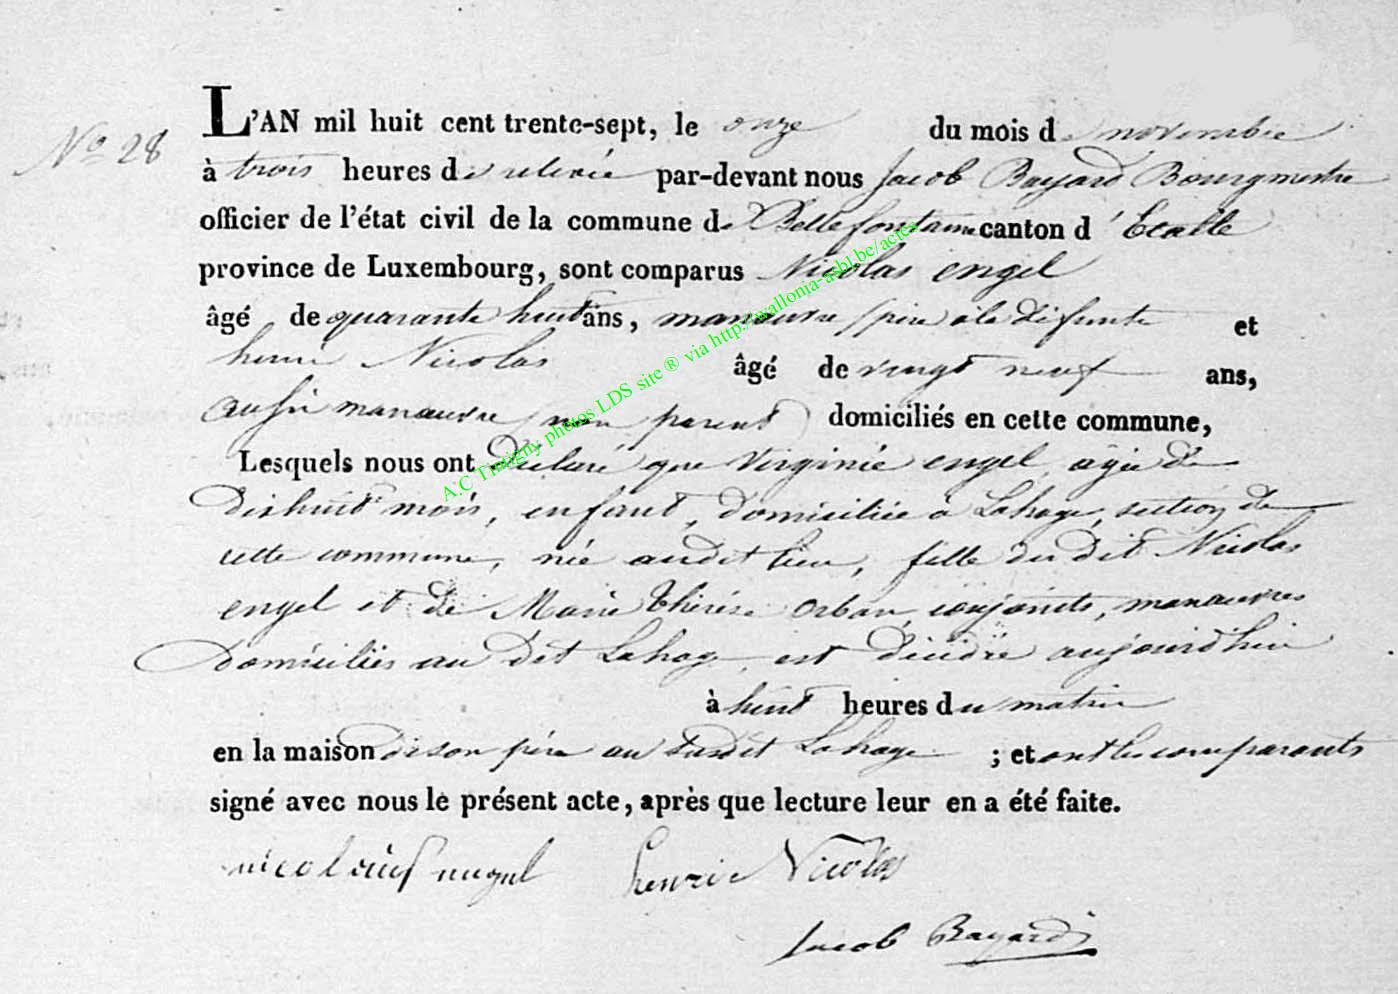 N.o 28
L'AN mil huit cent trente-sept, le onze du mois de novembre
à trois heures de relevée par-devant nous Jacob Bayard Bourgmestre
officier de l'état civil de la commune de Bellefontaine canton d'Etalle
province de Luxembourg, sont comparus Nicolas engel
âgé de quarante huit ans, manœuvre (père à la défunte et
henri Nicolas âgé de vingt neuf ans,
aussi manœuvre (non parent) domiciliés en cette commune,
Lesquels nous ont déclaré que Virginie engel, agée de
dixhuit mois, enfant, domiciliée à Lahage, section de
cette commune, née audit lieu, fille du dit Nicolas
engel et de Marie thérèse Orban, conjoints, manœuvres
domiciliés au dit Lahage, est décédée aujourd'hui
à huit heures du matin
en la maison de son père au susdit Lahage ; et ont les comparants
signé avec nous le présent acte, après que lecture leur en a été faite.
henri Nicolas
Jacob Bayard
A.C Tintigny photos LDS site ® via http://wallonia-asbl.be/actes